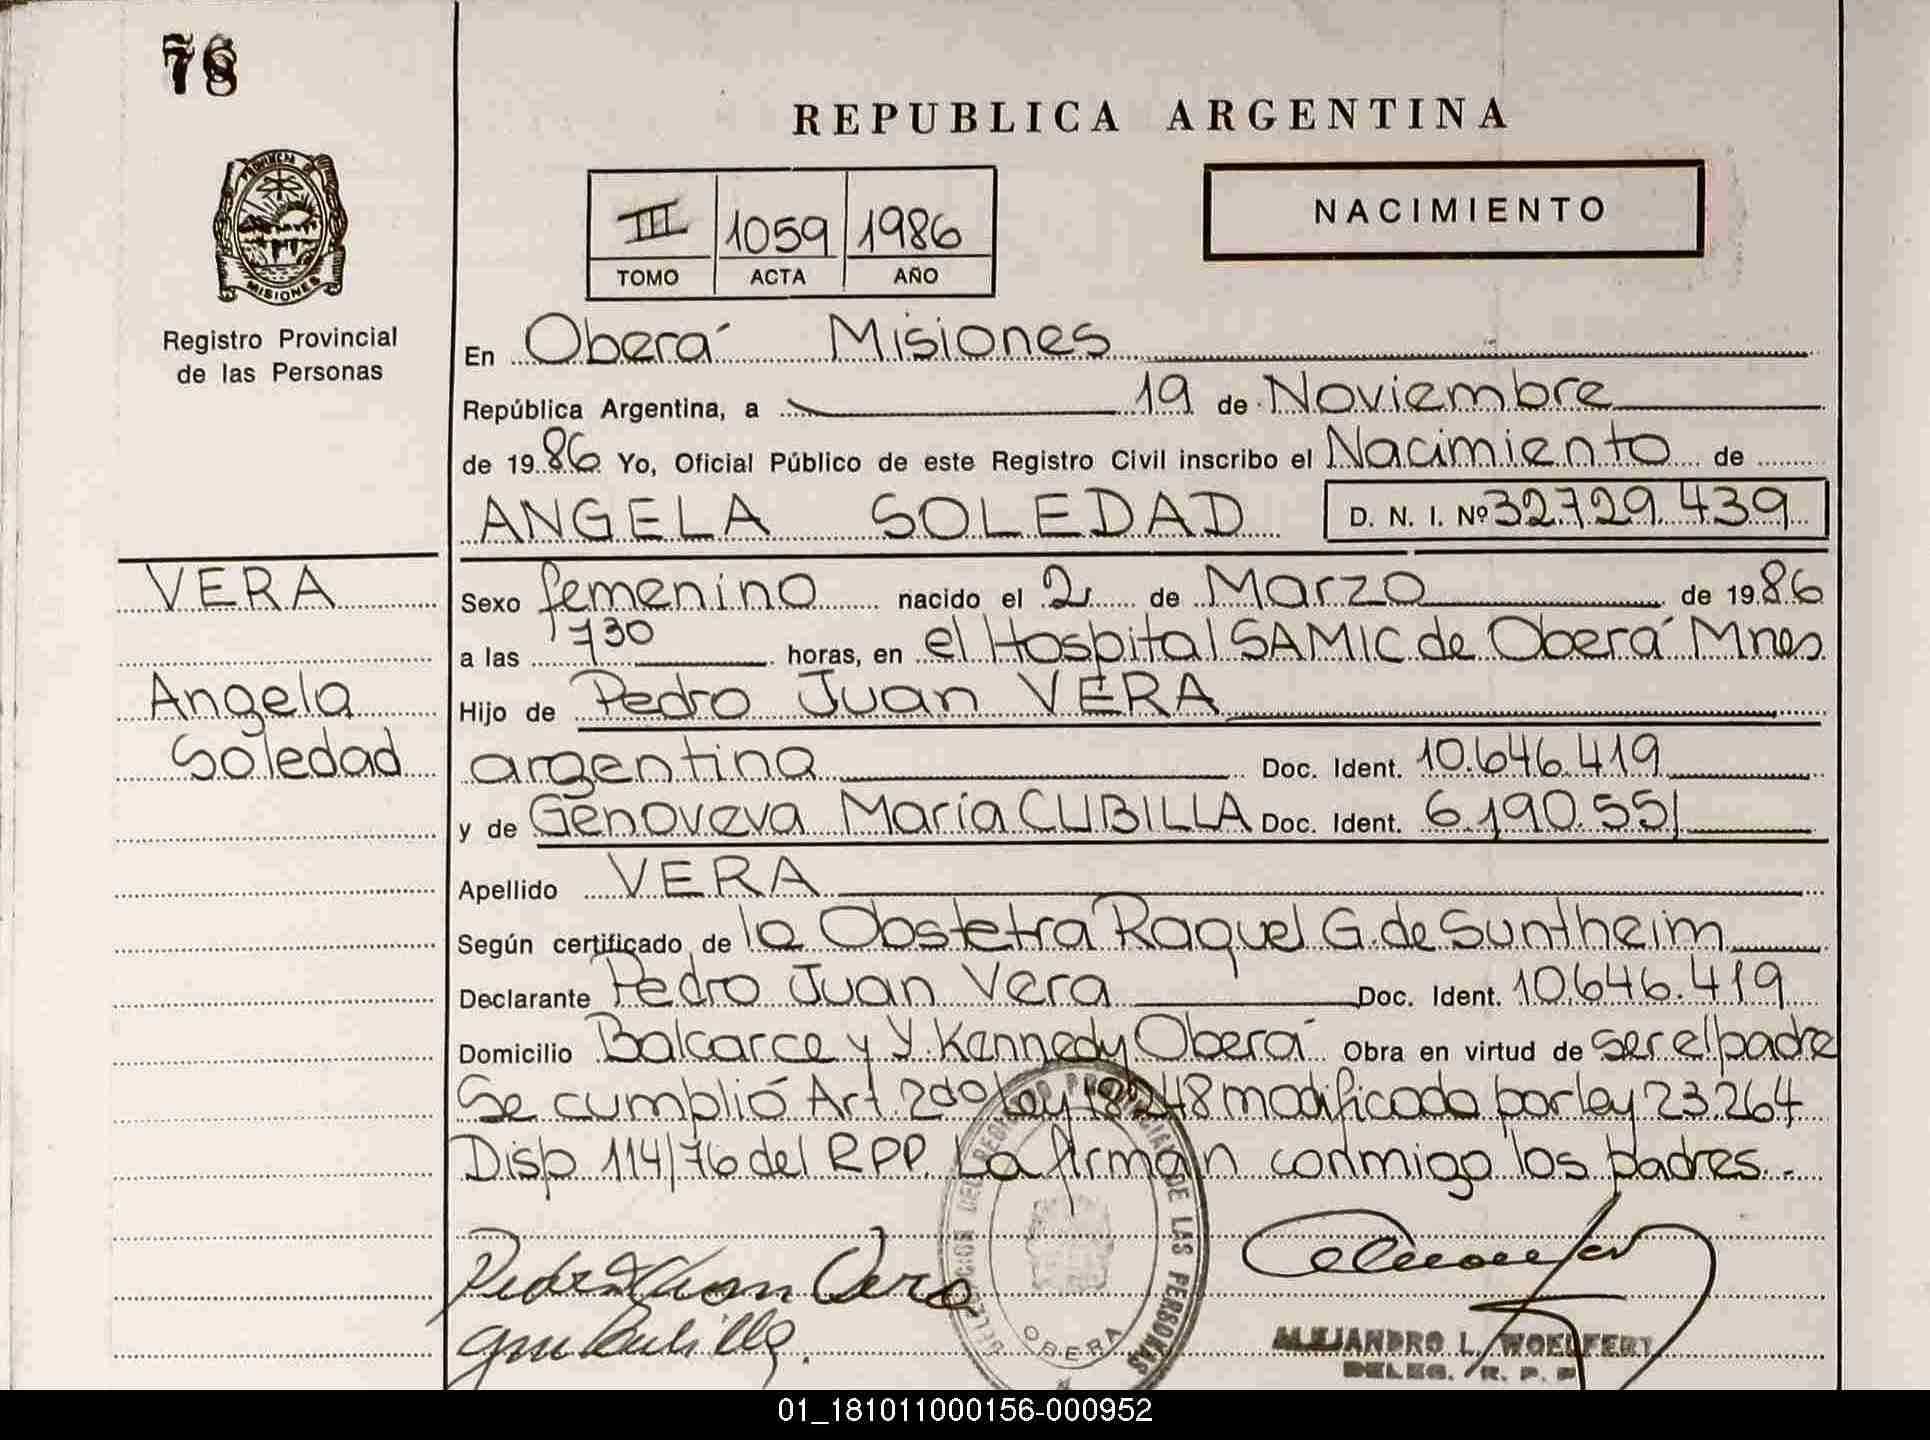 78
REPUBLICA ARGENTINA
PROVINCIA
MISIONES
Registro Provincial
de las Personas
III 1059 1986
TOMO ACTA AÑO
NACIMIENTO
En Oberá Misiones
República Argentina, a 19 de Noviembre
de 1986 Yo, Oficial Público de este Registro Civil inscribo el Nacimiento de
ANGELA SOLEDAD D. N. I. Nº 32.729.439
VERA
Angela
Soledad
Sexo femenino nacido el 2 de Marzo de 1986
a las 730 horas, en el Hospital SAMIC de Oberá Mnes
Hijo de Pedro Juan VERA
argentina Doc. Ident. 10.646.419
y de Genoveva María CUBILLA Doc. Ident. 6.190.551
Apellido VERA
Según certificado de la Obstetra Raquel G. de Suntheim
Declarante Pedro Juan Vera Doc. Ident. 10.646.419
Domicilio Balcarce y Y. Kennedy Oberá Obra en virtud de ser el padre
Se cumplió Art. 2do ley 18248 modificado por ley 23.264
Disp 114/76 del RPP. La firman conmigo los padres.-
Pedro Juan Vera
DELEGACION DEL REGISTRO PROVINCIAL DE LAS PERSONAS
OBERA
ALEJANDRO L. WOELFERT
DELEG. R. P. P.
01_181011000156-000952